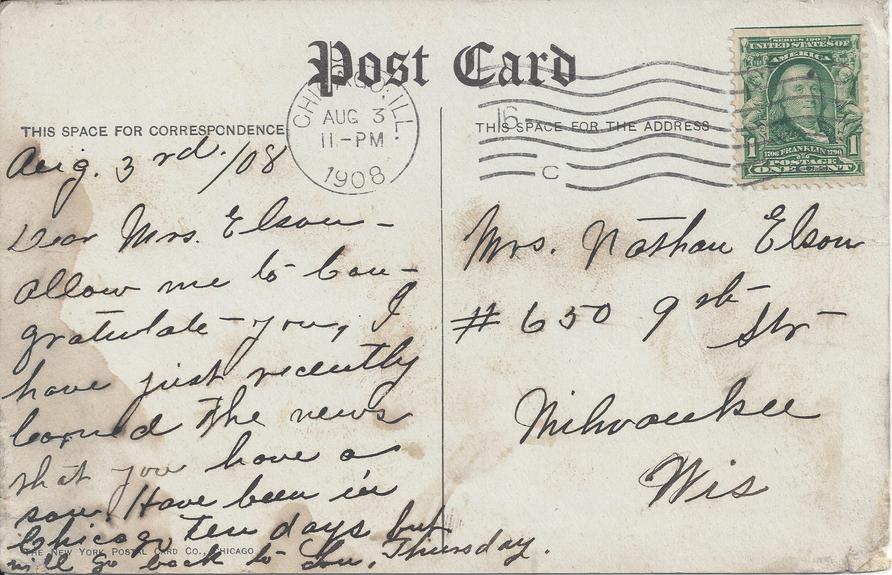 Post Card
CHICAGO, ILL.
AUG 3
11-PM
1908
16
C
SERIES 1902
UNITED STATES OF
AMERICA
1 1706 FRANKLIN 1790 1
POSTAGE
ONE CENT
THIS SPACE FOR CORRESPONDENCE
THIS SPACE FOR THE ADDRESS
Aug. 3rd./08
Dear Mrs. Elson—
Allow me to Con-
gratulate you, I
have just recently
learned the news
that you have a
son. Have been in
Chicago ten days but
will go back to Lou, Thursday.
Mrs. Nathan Elson
# 650 9th
Str
Milwaukee
Wis
THE NEW YORK POSTAL CARD CO., CHICAGO